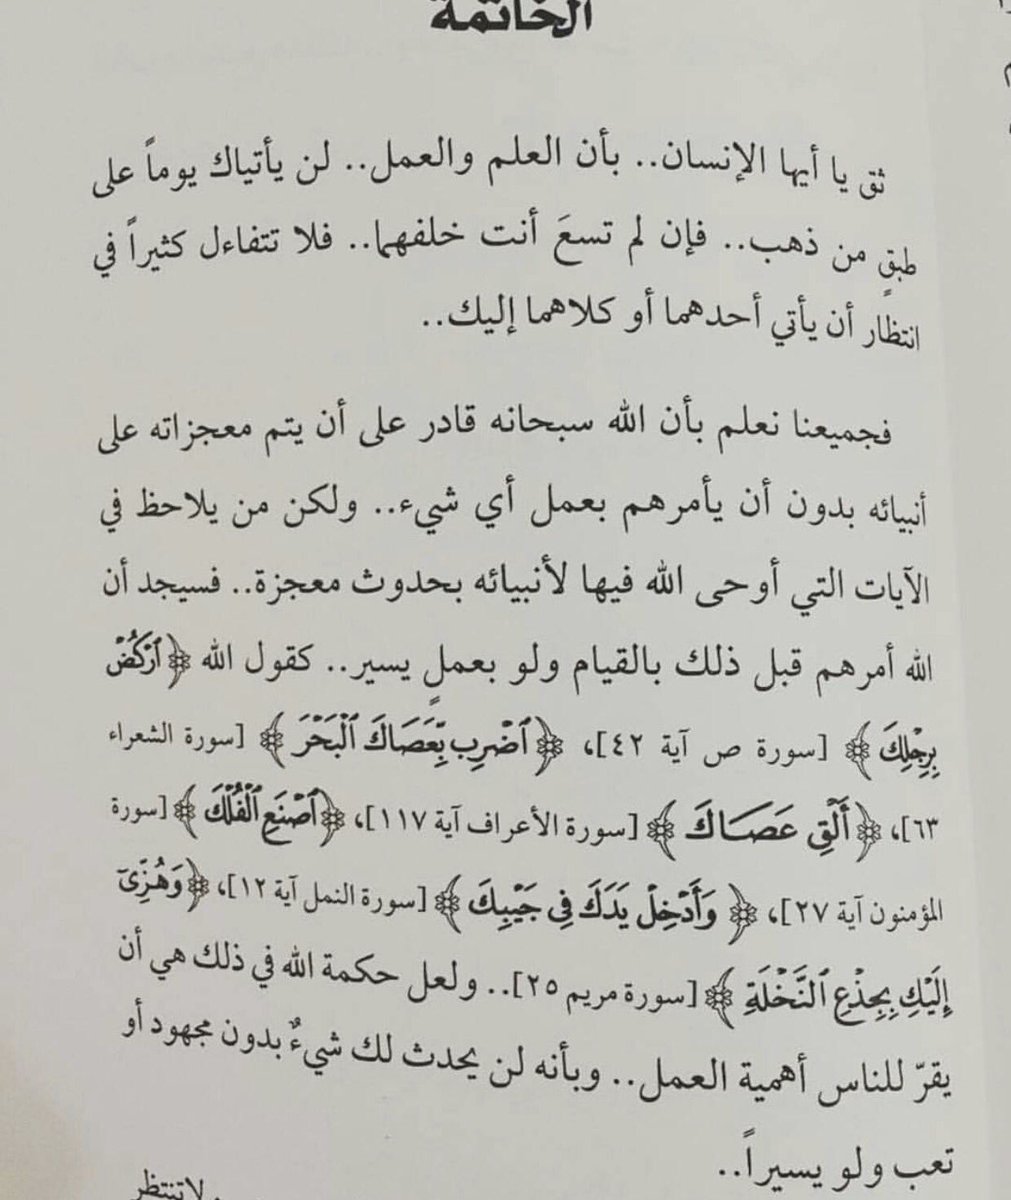 الخاتمة
ثق يا أيها الإنسان.. بأن العلم والعمل.. لن يأتياك يوماً على
طبقٍ من ذهب.. فإن لم تسعَ أنت خلفهما.. فلا تتفاءل كثيراً في
انتظار أن يأتي أحدهما أو كلاهما إليك..
فجميعنا نعلم بأن الله سبحانه قادر على أن يتم معجزاته على
أنبيائه بدون أن يأمرهم بعمل أي شيء.. ولكن من يلاحظ في
الآيات التي أوحى الله فيها لأنبيائه بحدوث معجزة.. فسيجد أن
الله أمرهم قبل ذلك بالقيام ولو بعملٍ يسير.. كقول الله ﴿ٱرْكُضْ
بِرِجْلِكَ﴾ [سورة ص آية ٤٢]، ﴿ٱضْرِب بِّعَصَاكَ ٱلْبَحْرَ﴾ [سورة الشعراء
٦٣]، ﴿أَلْقِ عَصَاكَ﴾ [سورة الأعراف آية ١١٧]، ﴿ٱصْنَعِ ٱلْفُلْكَ﴾ [سورة
المؤمنون آية ٢٧]، ﴿وَأَدْخِلْ يَدَكَ فِى جَيْبِكَ﴾ [سورة النمل آية ١٢]، ﴿وَهُزِّىٓ
إِلَيْكِ بِجِذْعِ ٱلنَّخْلَةِ﴾ [سورة مريم ٢٥].. ولعل حكمة الله في ذلك هي أن
يقرّ للناس أهمية العمل.. وبأنه لن يحدث لك شيءٌ بدون مجهود أو
تعب ولو يسيراً..
لاتنتظر